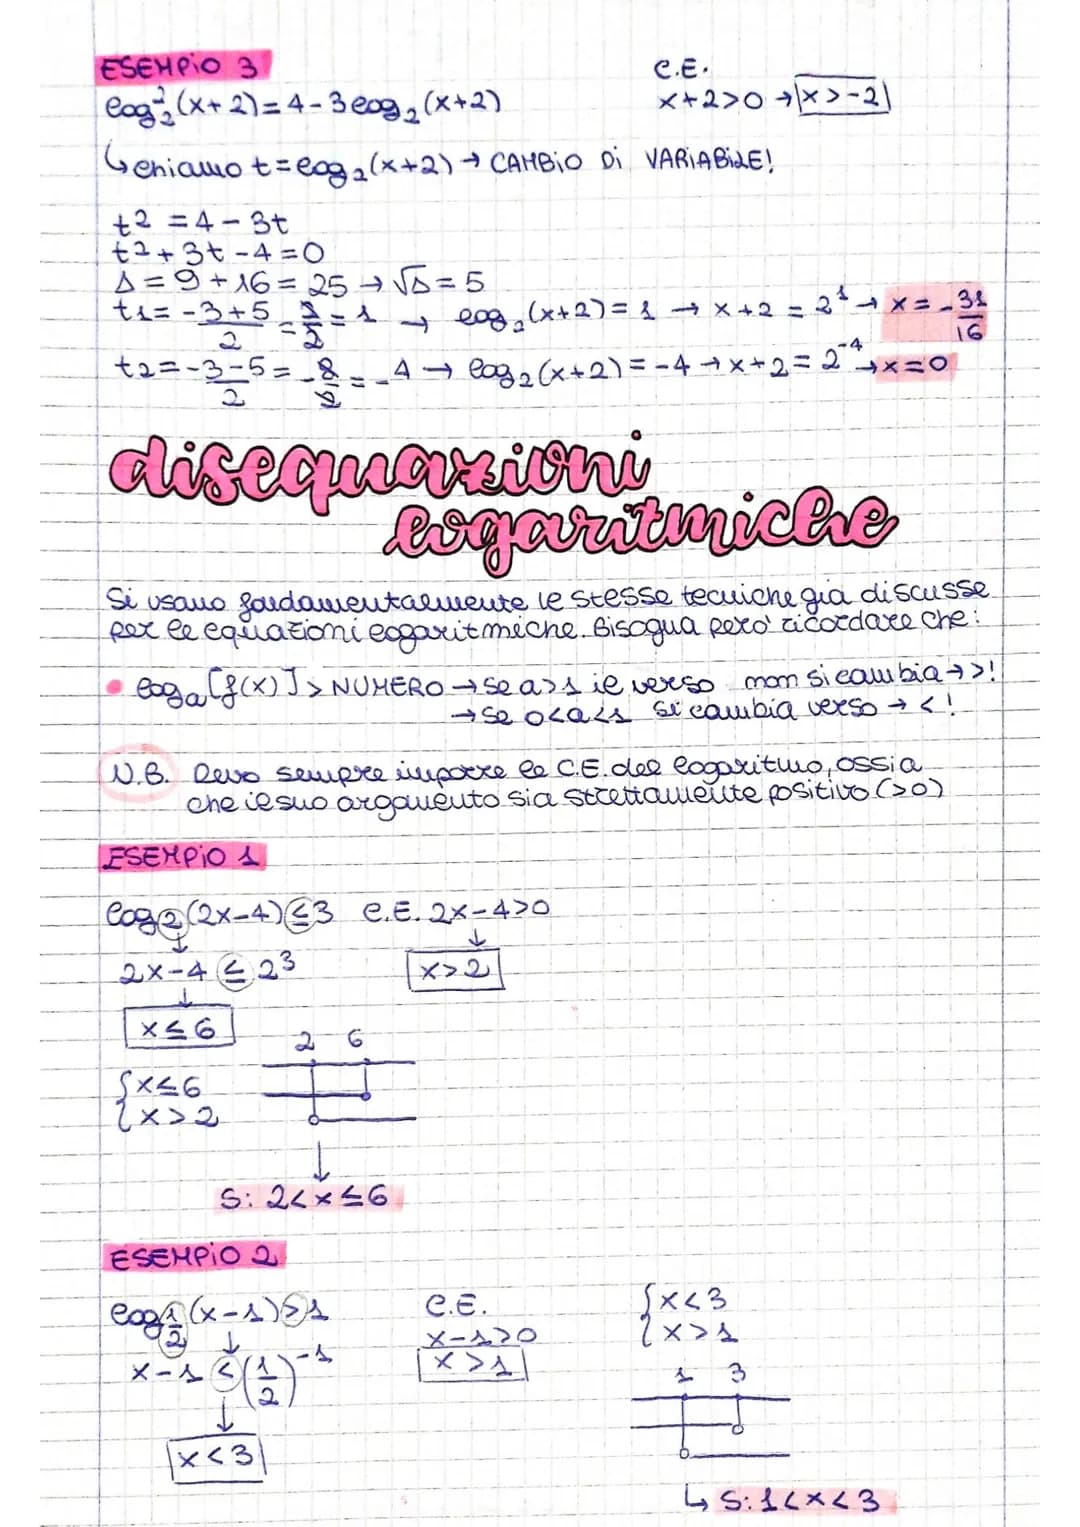 ESEMPIO 3
log₂²(x+2)=4-3log₂(x+2)
C.E.
x+2>0 → x>-2
↳ chiamo t=log₂(x+2) → CAMBIO Di VARIABILE!
t² = 4-3t
t²+3t-4=0
Δ=9+16=25 → √Δ=5
t1= (-3+5)/2 = 2/2 = 1 → log₂(x+2)=1 → x+2=2¹ → x=-31/16
t2= (-3-5)/2 = -8/2 = -4 → log₂(x+2)=-4 → x+2=2⁻⁴ → x=0
disequazioni
logaritmiche
Si usano fondamentalmente le stesse tecniche già discusse
per le equazioni logaritmiche. Bisogna pero' ricordare che:
• logₐ[f(x)]> NUMERO → se a>1 il verso non si cambia → >!
→ se 0<a<1 si cambia verso → <!
N.B. Devo sempre imporre le C.E. del logaritmo, ossia
che il suo argomento sia strettamente positivo (>0)
ESEMPIO 1
log₂(2x-4)≤3 C.E. 2x-4>0
↓ ↓
2x-4 ≤ 2³ x>2
↓
x≤6
2 6
{x≤6
{x>2
↓
S: 2<x≤6
ESEMPIO 2
log½(x-1)>1
↓
x-1 < (1/2)⁻¹
↓
x<3
C.E.
x-1>0
x>1
{x<3
{x>1
1 3
↳ S: 1<x<3